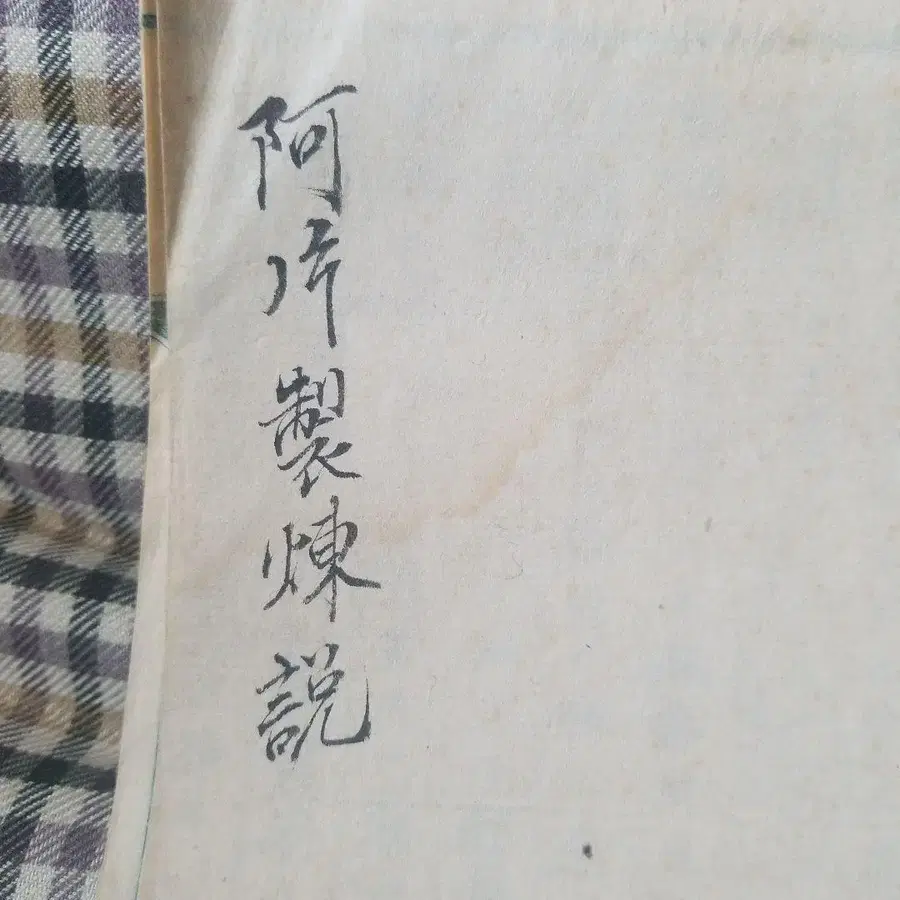 阿片製煉説